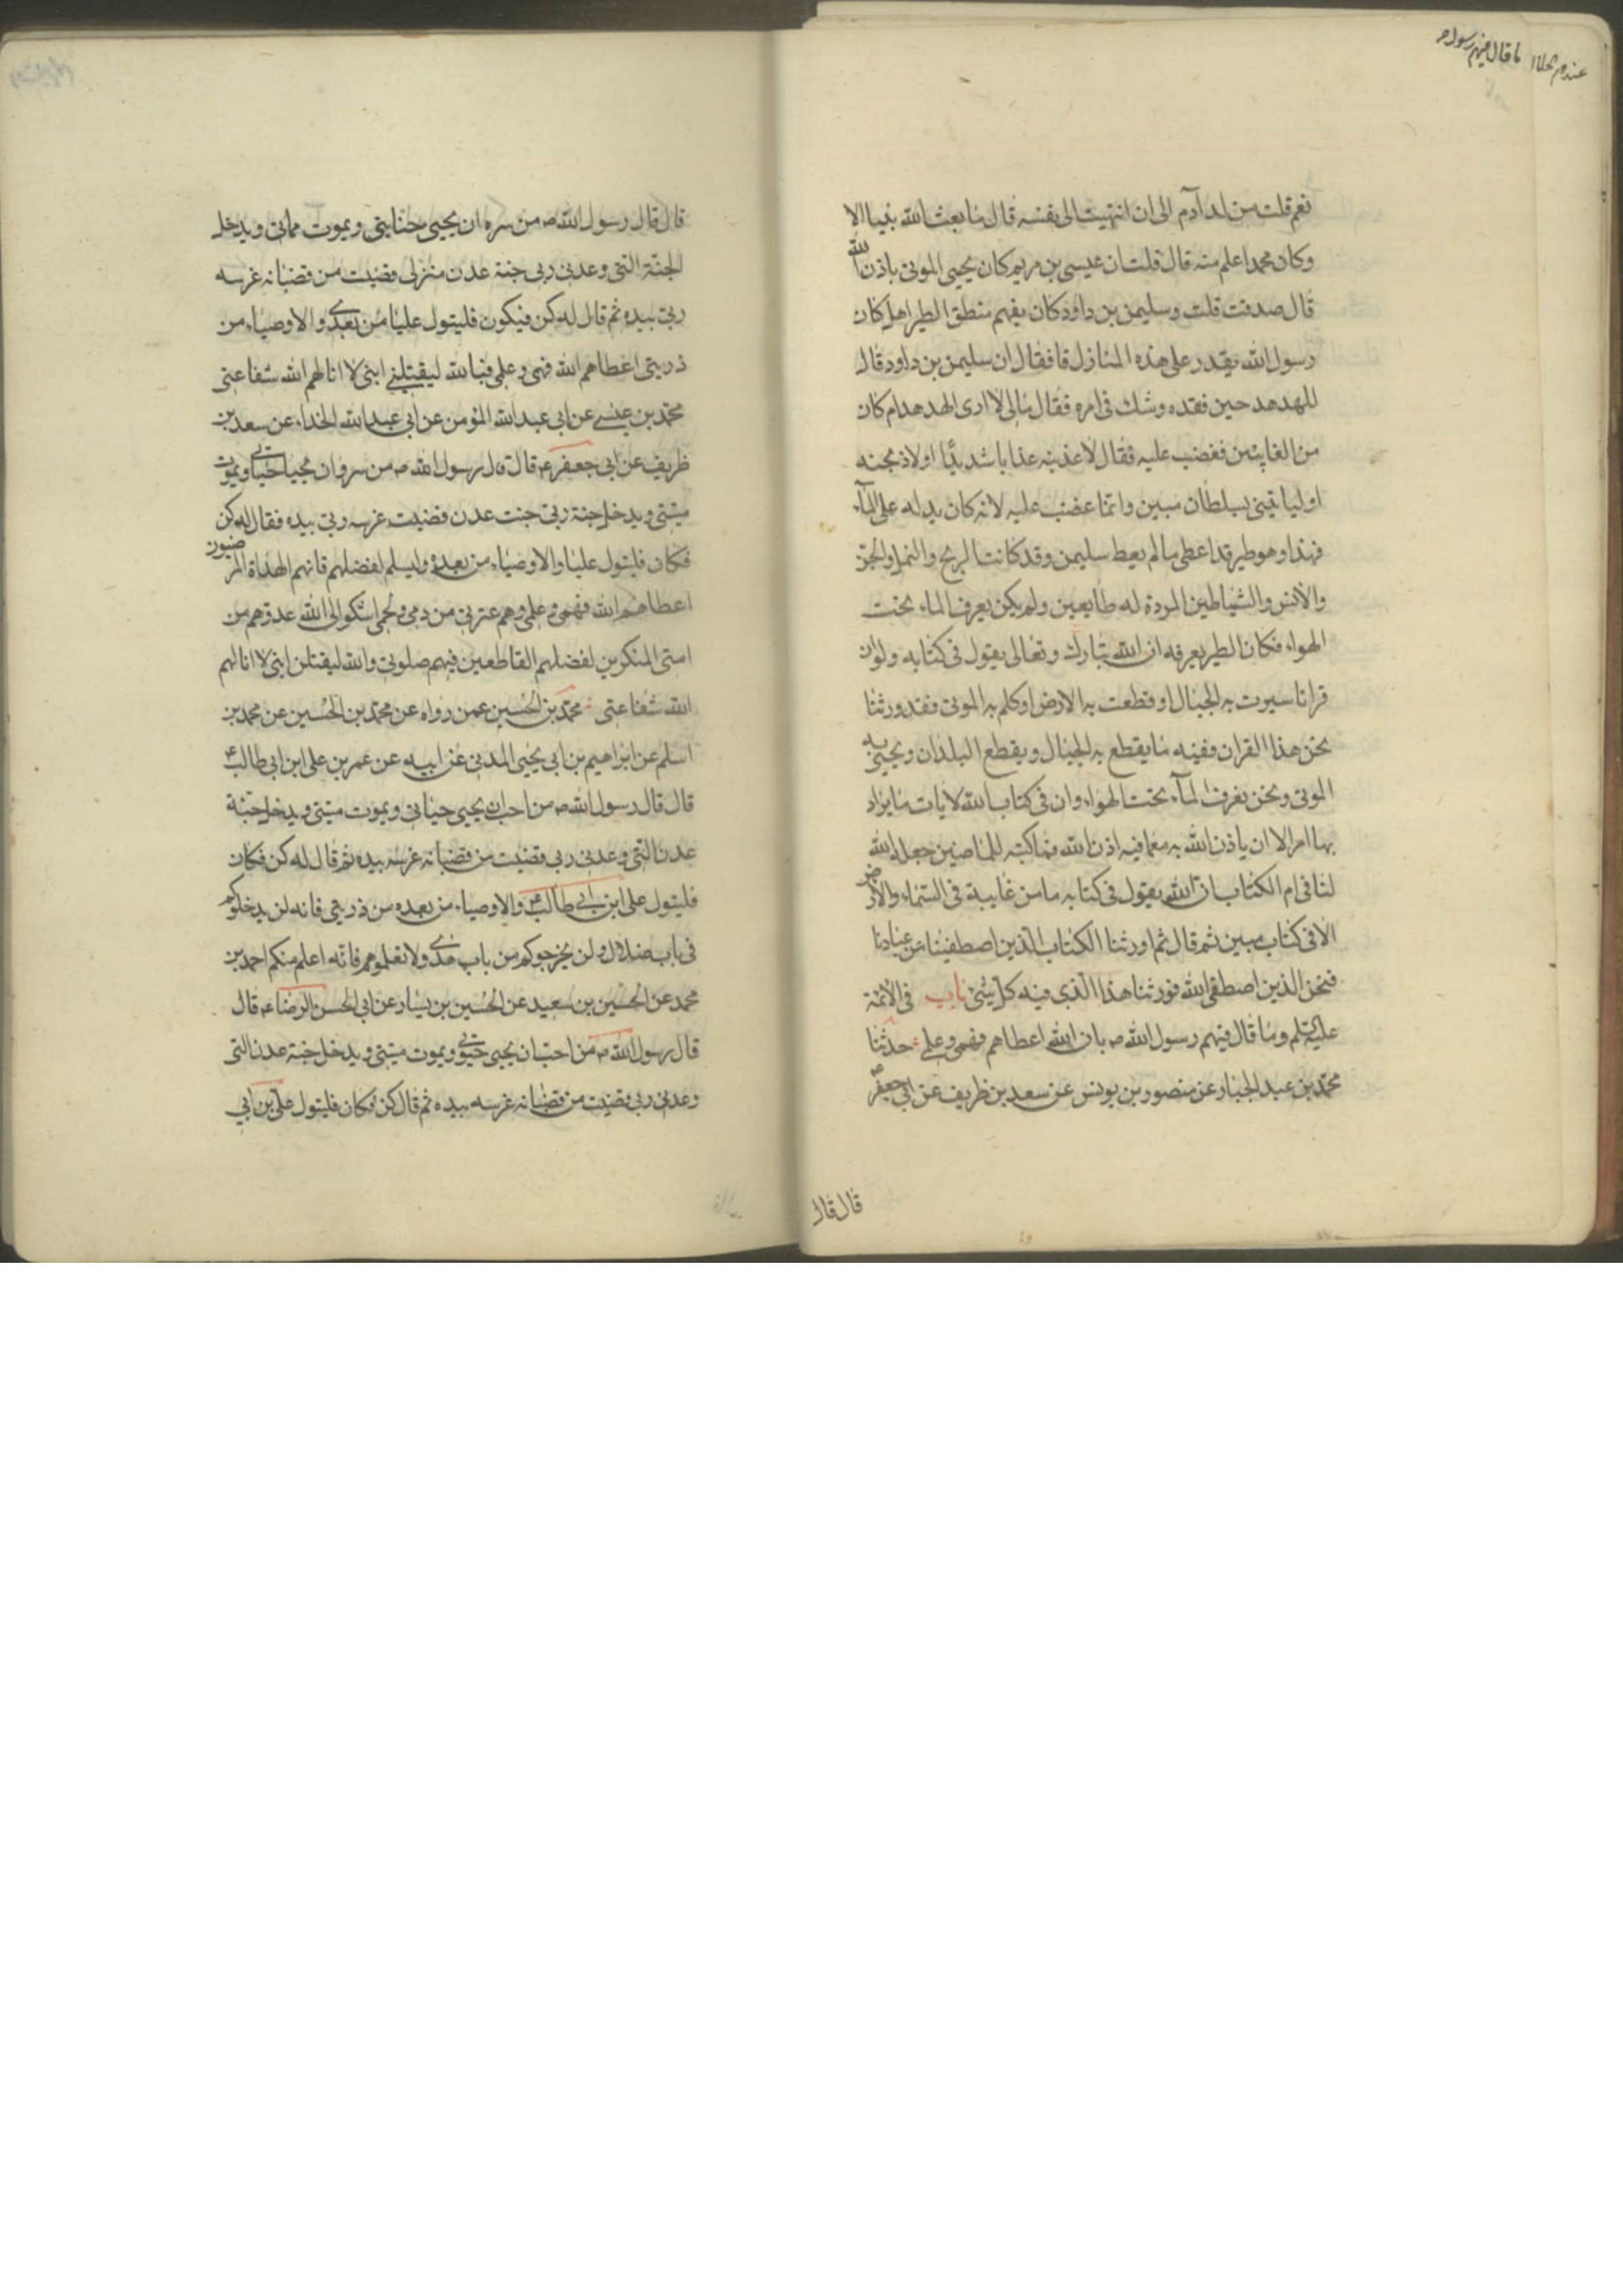 ما قال فيهم رسول
نعم قلت من لدادم الى ان انتهيت الى نفسه قال ما بعث الله نبيا الا
وكان محمدا اعلم منه قال قلت ان عيسى بن مريم كان يحيى الموتى باذن الله
قال صدقت قلت وسليمن بن داود كان يفهم منطق الطير اهل كان
رسول الله يقدر على هذه المنازل قا فقال ان سليمن بن داود قال
للهدهد حين فقده وشك فى امره فقال مالى لا ارى الهدهد ام كان
من الغايبين فغضب عليه فقال لاعذبنه عذابا شديدًا اولاذبحنه
اوليا تينى بسلطان مبين وانما غضب عليه لانه كان يدله على المآء
فهذا وهو طير قد اعطى ما لم يعط سليمن وقد كانت الريح والنمل والجن
والانس والشياطين المردة له طايعين ولم يكن يعرف الماء تحت
الهواء فكان الطير يعرفه ان الله تبارك وتعالى يقول فى كتابه ولو ان
قرانا سيرت به الجبال او قطعت به الارض او كلم به الموتى فقد ورثنا
نحن هذا القران ففيه ما يقطع به الجبال ويقطع البلدان ويحيى به
الموتى ونحن نعرف المآء تحت الهواء وان فى كتاب الله لايات ما يراد
بها امر الا ان ياذن الله به مع ما فيه اذن الله فما كتبه للماضين جعله الله
لنا فى ام الكتاب ان الله يقول فى كتابه ما من غايبة فى السماء والارض
الا فى كتاب مبين ثم قال ثم اورثنا الكتاب الذين اصطفينا من عبادنا
فنحن الذين اصطفى الله فورثنا هذا الذى فيه كل شئ باب فى الائمة
عليهم السلم وما قال فيهم رسول الله ص بان الله اعطاهم فهمى وعلمى حدثنا
محمد بن عبد الجبار عن منصور بن يونس عن سعد بن ظريف عن ابى جعفر ع
قال قال
قال قال رسول الله ص من سره ان يحيى حياتى ويموت مماتى ويدخل
الجنة التى وعدنى ربى جنة عدن منزلى قضيب من قضبانه غرسه
ربى بيده ثم قال له كن فيكون فليتول عليا من بعدى والاوصياء من
ذريتى اعطاهم الله فهمى وعلمى فبالله ليقتلن ابنى لا انالهم الله شفاعتى
محمد بن عيسى عن ابى عبد الله المؤمن عن ابى عبد الله الحذاء عن سعد بن
ظريف عن ابى جعفر ع قال قال رسول الله ص من سره ان يحيا حياتى ويموت
ميتتى ويدخل جنة ربى جنت عدن قضيب غرسه ربى بيده فقال له كن
فكان فليتول عليا والاوصياء من بعده وليسلم لفضلهم فانهم الهداة المرضيون
اعطاهم الله فهمى وعلمى وهم عترتى من دمى ولحمى اشكو الى الله عدوهم من
امتى المنكرين لفضلهم القاطعين فيهم صلوتى والله ليقتلن ابنى لا انالهم
الله شفاعتى محمد بن الحسين عمن رواه عن محمد بن الحسين عن محمد بن
اسلم عن ابراهيم بن ابى يحيى المدنى عن ابيه عن عمر بن على ابن ابى طالب ع
قال قال رسول الله ص من احب ان يحيى حياتى ويموت ميتتى ويدخل جنة
عدن التى وعدنى ربى قضيب من قضبانه غرسه بيده ثم قال له كن فكان
فليتول على ابن ابى طالب ع والاوصياء من بعده من ذريتى فانه لن يدخلوكم
فى باب ضلال ولن يخرجوكم من باب هدى ولا تعلموهم فانه اعلم منكم احمد بن
محمد عن الحسين بن سعيد عن الحسين بن يسار عن ابى الحسن الرضا ع قال
قال رسول الله ص من احب ان يحيى حيوتى ويموت ميتتى ويدخل جنة عدن التى
وعدنى ربى قضيب من قضبانه غرسه بيده ثم قال كن فكان فليتول على بن ابى